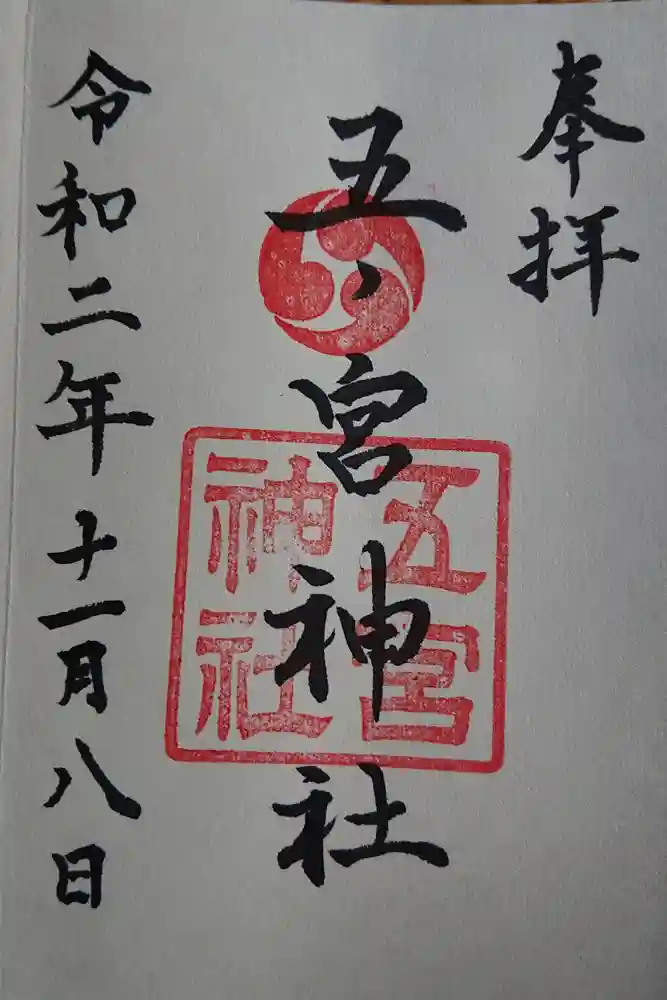 奉拝
五、宮神社
五宮
神社
令和二年十一月八日